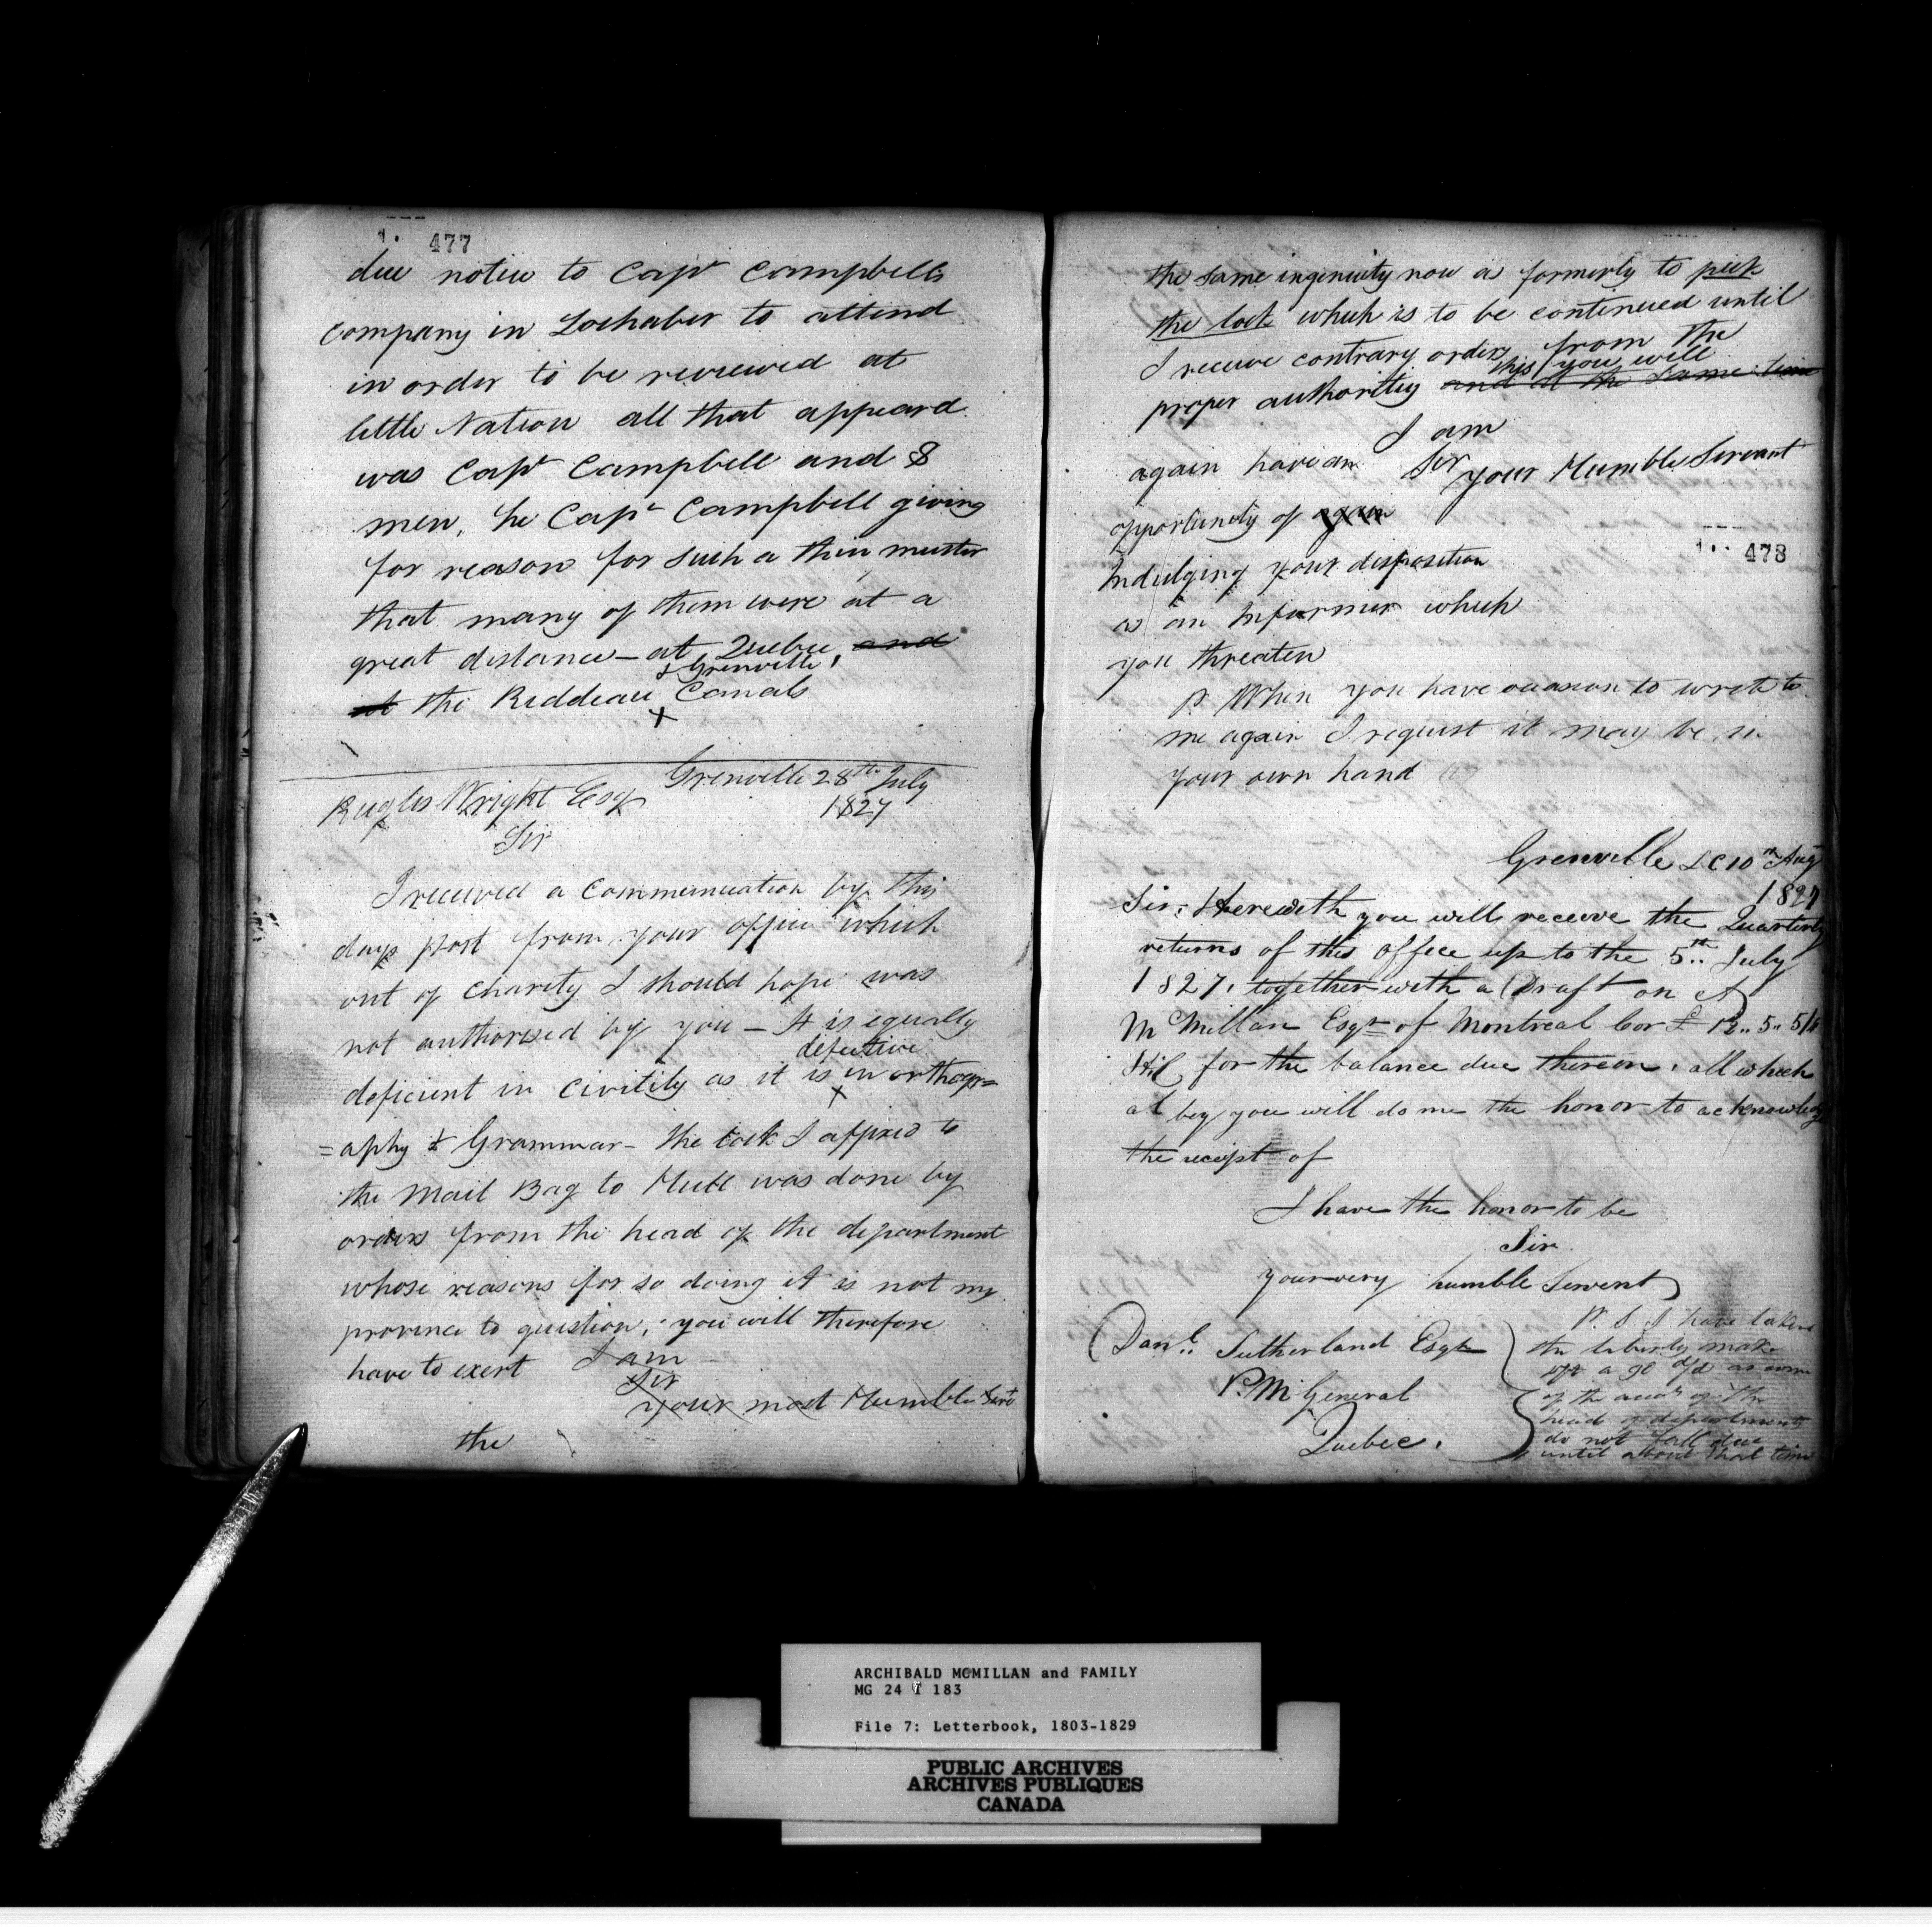 1. 477
due notice to Capt Campbells
company in Lochaber to attend
in order to be reviewed at
little Nation all that appeard
was Capt Campbell and 8
men, he Capt Campbell giving
for reason for such a thin muster
that many of them were at a
great distance – at Quebec, and
& Grenville
at the Riddeau Canals
x
Grenville 28th July
1827
Rugles Wright Esqr
Sir
I received a communication by this
days post from your office which
out of charity I should hope was
not authorised by you – It is equally
defective
deficient in civility as it is in orthogr=
x
=aphy & Grammar – the lock I affixed to
the Mail Bag to Hull was done by
orders from the head of the department
whose reasons for so doing it is not my
province to question, you will therefore
have to exert
I am
Sir
your most Humble Servt
the
the same ingenuity now as formerly to pick
the lock which is to be continued until
I receive contrary orders from the
this you will
proper authority and at the same time
I am
again have an Sir your Humble Servant
opportunity of again
Indulging your disposition
as an Informer which
you threaten
1.. 478
P. When you have occasion to write to
me again I request it may be in
your own hand
Grenville LC 10th Augt
1827
Sir, Herewith you will receive the Quarterly
returns of this office up to the 5th July
1827, together with a Draft on A
McMillan Esqr of Montreal for £ 12.. 5.. 5/4
for the balance due thereon, all which
I beg you will do me the honor to acknowledge
the receipt of
I have the honor to be
Sir
your very humble Servent
Danl. Sutherland Esqr
P. M General
Quebec.
P. S. I have taken
the liberty make
a 90 d/d as some
of the accts of the
head of department
do not fall due
until about that time
ARCHIBALD McMILLAN and FAMILY
MG 24 I 183
File 7: Letterbook, 1803-1829
PUBLIC ARCHIVES
ARCHIVES PUBLIQUES
CANADA